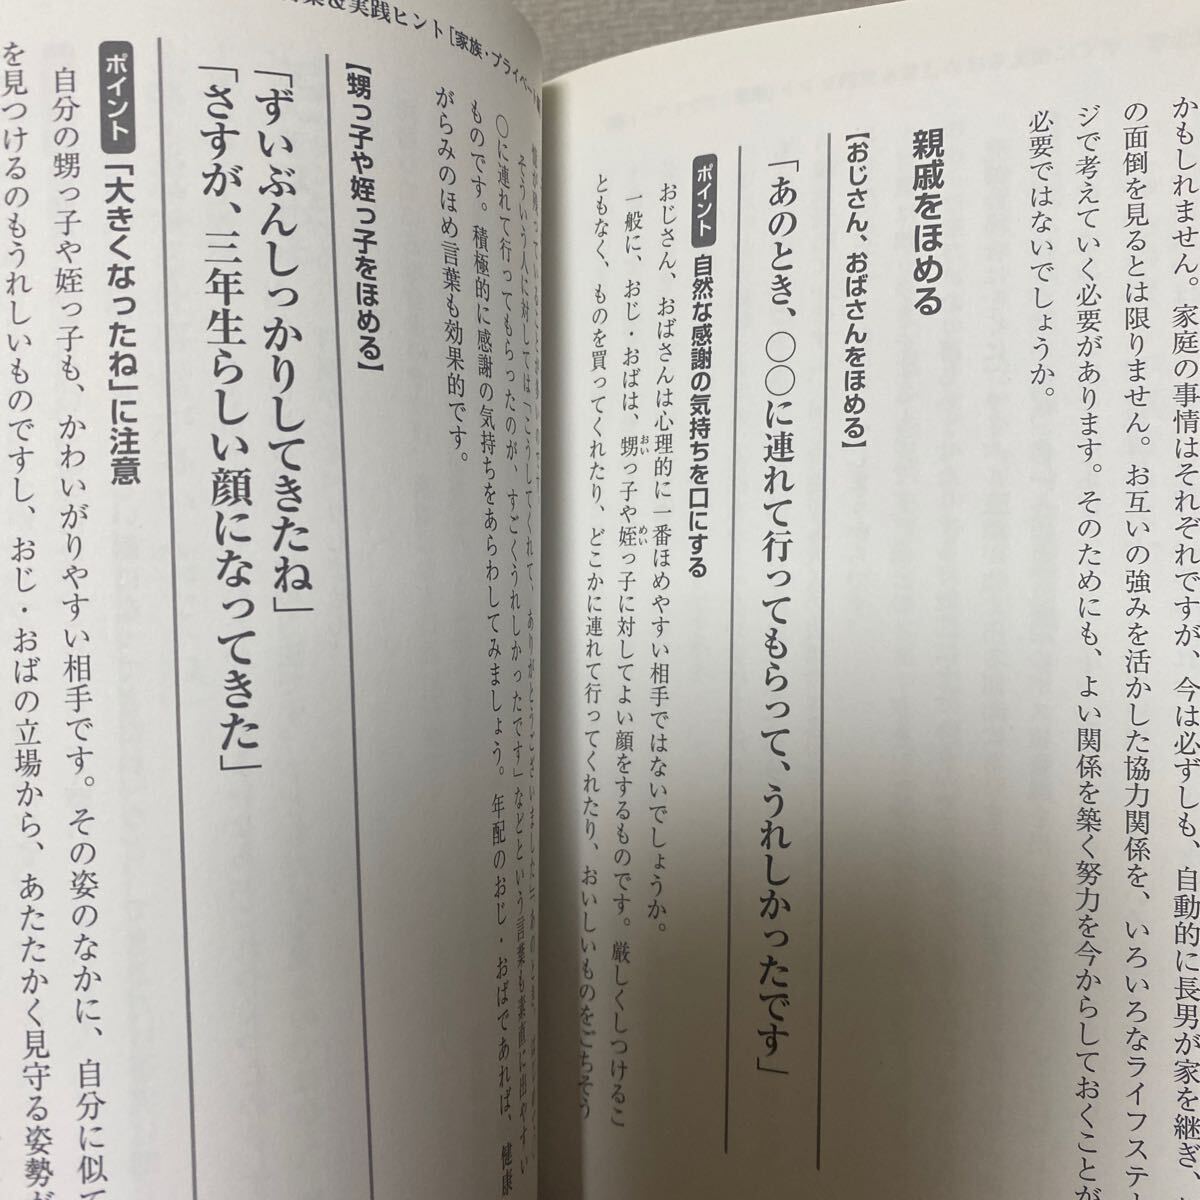 かもしれません。家庭の事情はそれぞれですが、今は必ずしも、自動的に長男が家を継ぎ
の面倒を見るとは限りません。お互いの強みを活かした協力関係を、いろいろなライフステー
ジで考えていく必要があります。そのためにも、よい関係を築く努力を今からしておくことが
必要ではないでしょうか。
親戚をほめる
【おじさん、おばさんをほめる】
「あのとき、〇〇に連れて行ってもらって、うれしかったです」
ポイント 自然な感謝の気持ちを口にする
おじさん、おばさんは心理的に一番ほめやすい相手ではないでしょうか。
一般に、おじ・おばは、甥っ子や姪っ子に対してよい顔をするものです。厳しくしつけるこ
おい めい
ともなく、ものを買ってくれたり、どこかに連れて行ってくれたり、おいしいものをごちそう
&実践ヒント[家族・プライベート
そういう人に対しては「こうしてくれて、ありがとうございました」「あのとき、
〇に連れて行ってもらったのが、すごくうれしかったです」などという言葉も素直に出やすい
ものです。積極的に感謝の気持ちをあらわしてみましょう。年配のおじ・おばであれば、健康
がらみのほめ言葉も効果的です。
【甥っ子や姪っ子をほめる】
「ずいぶんしっかりしてきたね」
「さすが、三年生らしい顔になってきた」
ポイント 「大きくなったね」に注意
自分の甥っ子や姪っ子も、かわいがりやすい相手です。その姿のなかに、自分に似て
を見つけるのもうれしいものですし、おじ・おばの立場から、あたたかく見守る姿勢が